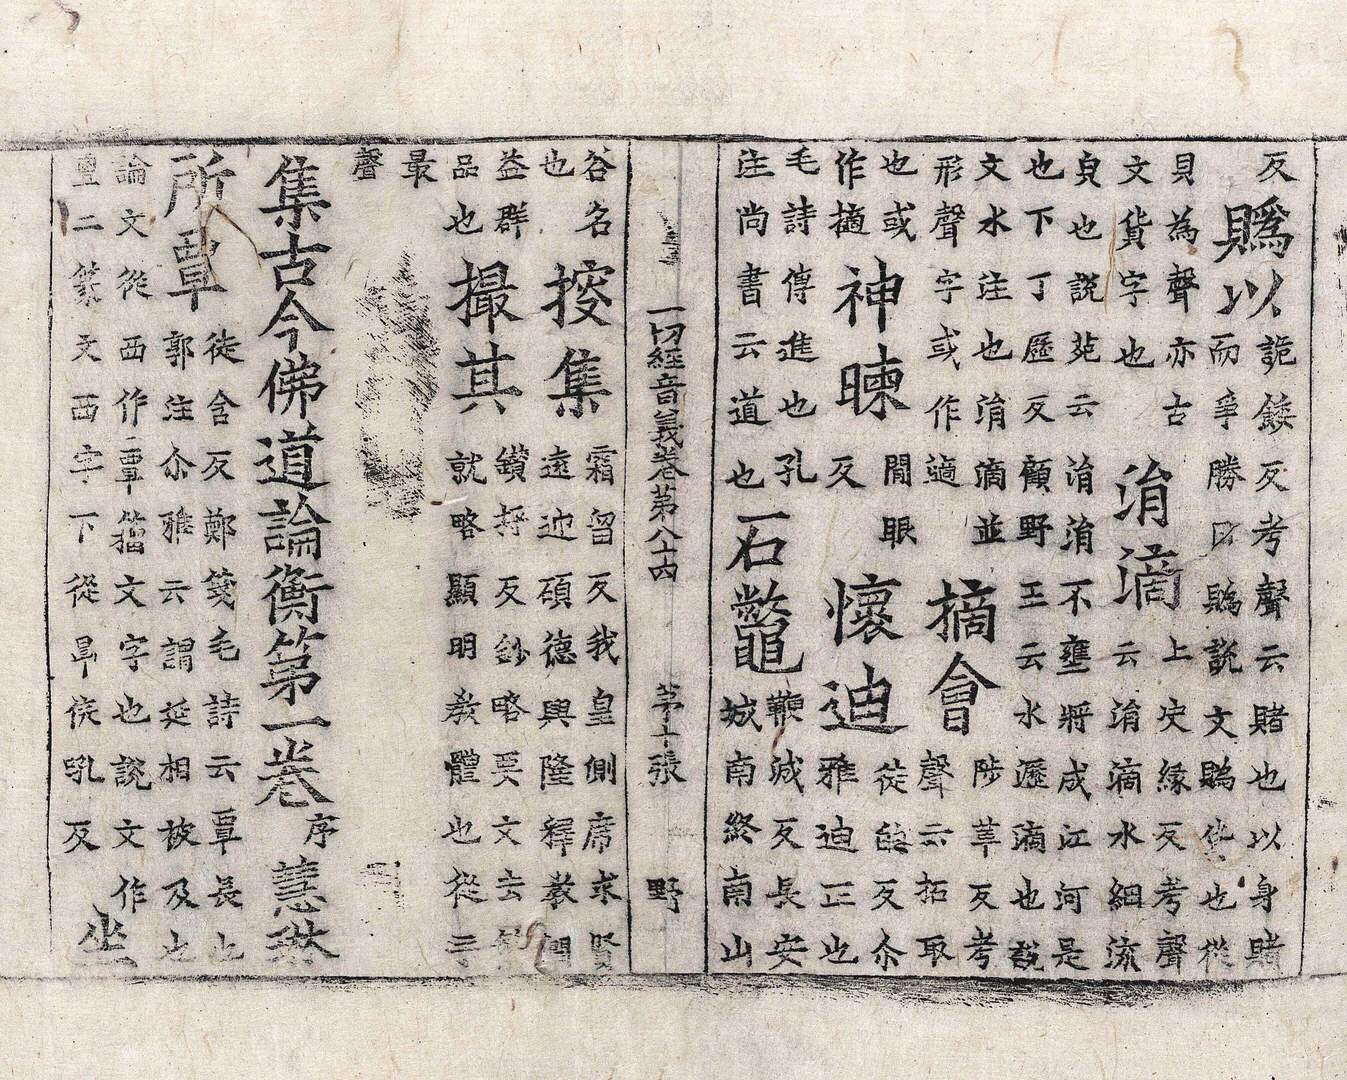 反
䞈以
詭餧反考聲云賭也以身賭
而爭勝曰䞈說文䞈佹也從
貝為聲亦古
文貨字也
涓滴
上决緣反考聲
云涓滴水細流
皃也說苑云涓涓不壅將成江河是
也下丁歷反顧野王云水瀝滴也說
文水注也涓滴並
形聲字或作適
摘會
陟革反考
聲云拓取
也或
作擿
神暕
閒眼
反
懷迪
徒的反尒
雅迪正也
毛詩傳進也孔
注尚書云道也
石鼈
鞭滅反長安
城南終南山
一切經音義卷第八十四 第十張 野
谷名
也
搜集
霜留反我皇側席求賢
遠迎碩德興隆釋教開
益群
品也
撮其
鑚捋反鈔略要文去繁
就略顯明教體也從手
最
聲
集古今佛道論衡第一卷 序 慧琳
所覃
徒含反鄭箋毛詩云覃長也
郭注尒雅云謂延相被及也
論文從西作覃籀文字也說文作
二篆文西字下從㫗侯吼反
坐